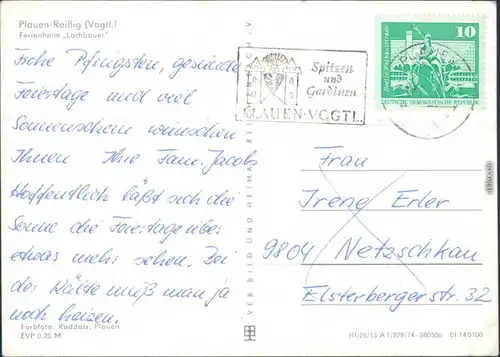 Plauen-Reißig (Vogtl.)
Ferienheim „Lochbauer"
Frohe Pfingsten, gesunde
Feiertage und viel
Sonnenschein wünschen
Ihnen Ihre Fam. Jacobs
Hoffentlich läßt sich die
Sonne die Feiertage über
etwas mehr sehen. Bei
der Kälte muß man ja
noch heizen.
Farbfoto: Raddatz, Plauen
EVP 0,20 M
VERBILD UND HEIMAT REICHENBACH I. V.
Spitzen
und
Gardinen
PLAUEN-VOGTL.
10
DEUTSCHE DEMOKRATISCHE REPUBLIK
Frau
Irene Erler
9804 Netzschkau
Elsterbergerstr. 32
III/26/13 A 1/229/74 280506 01 14 0100